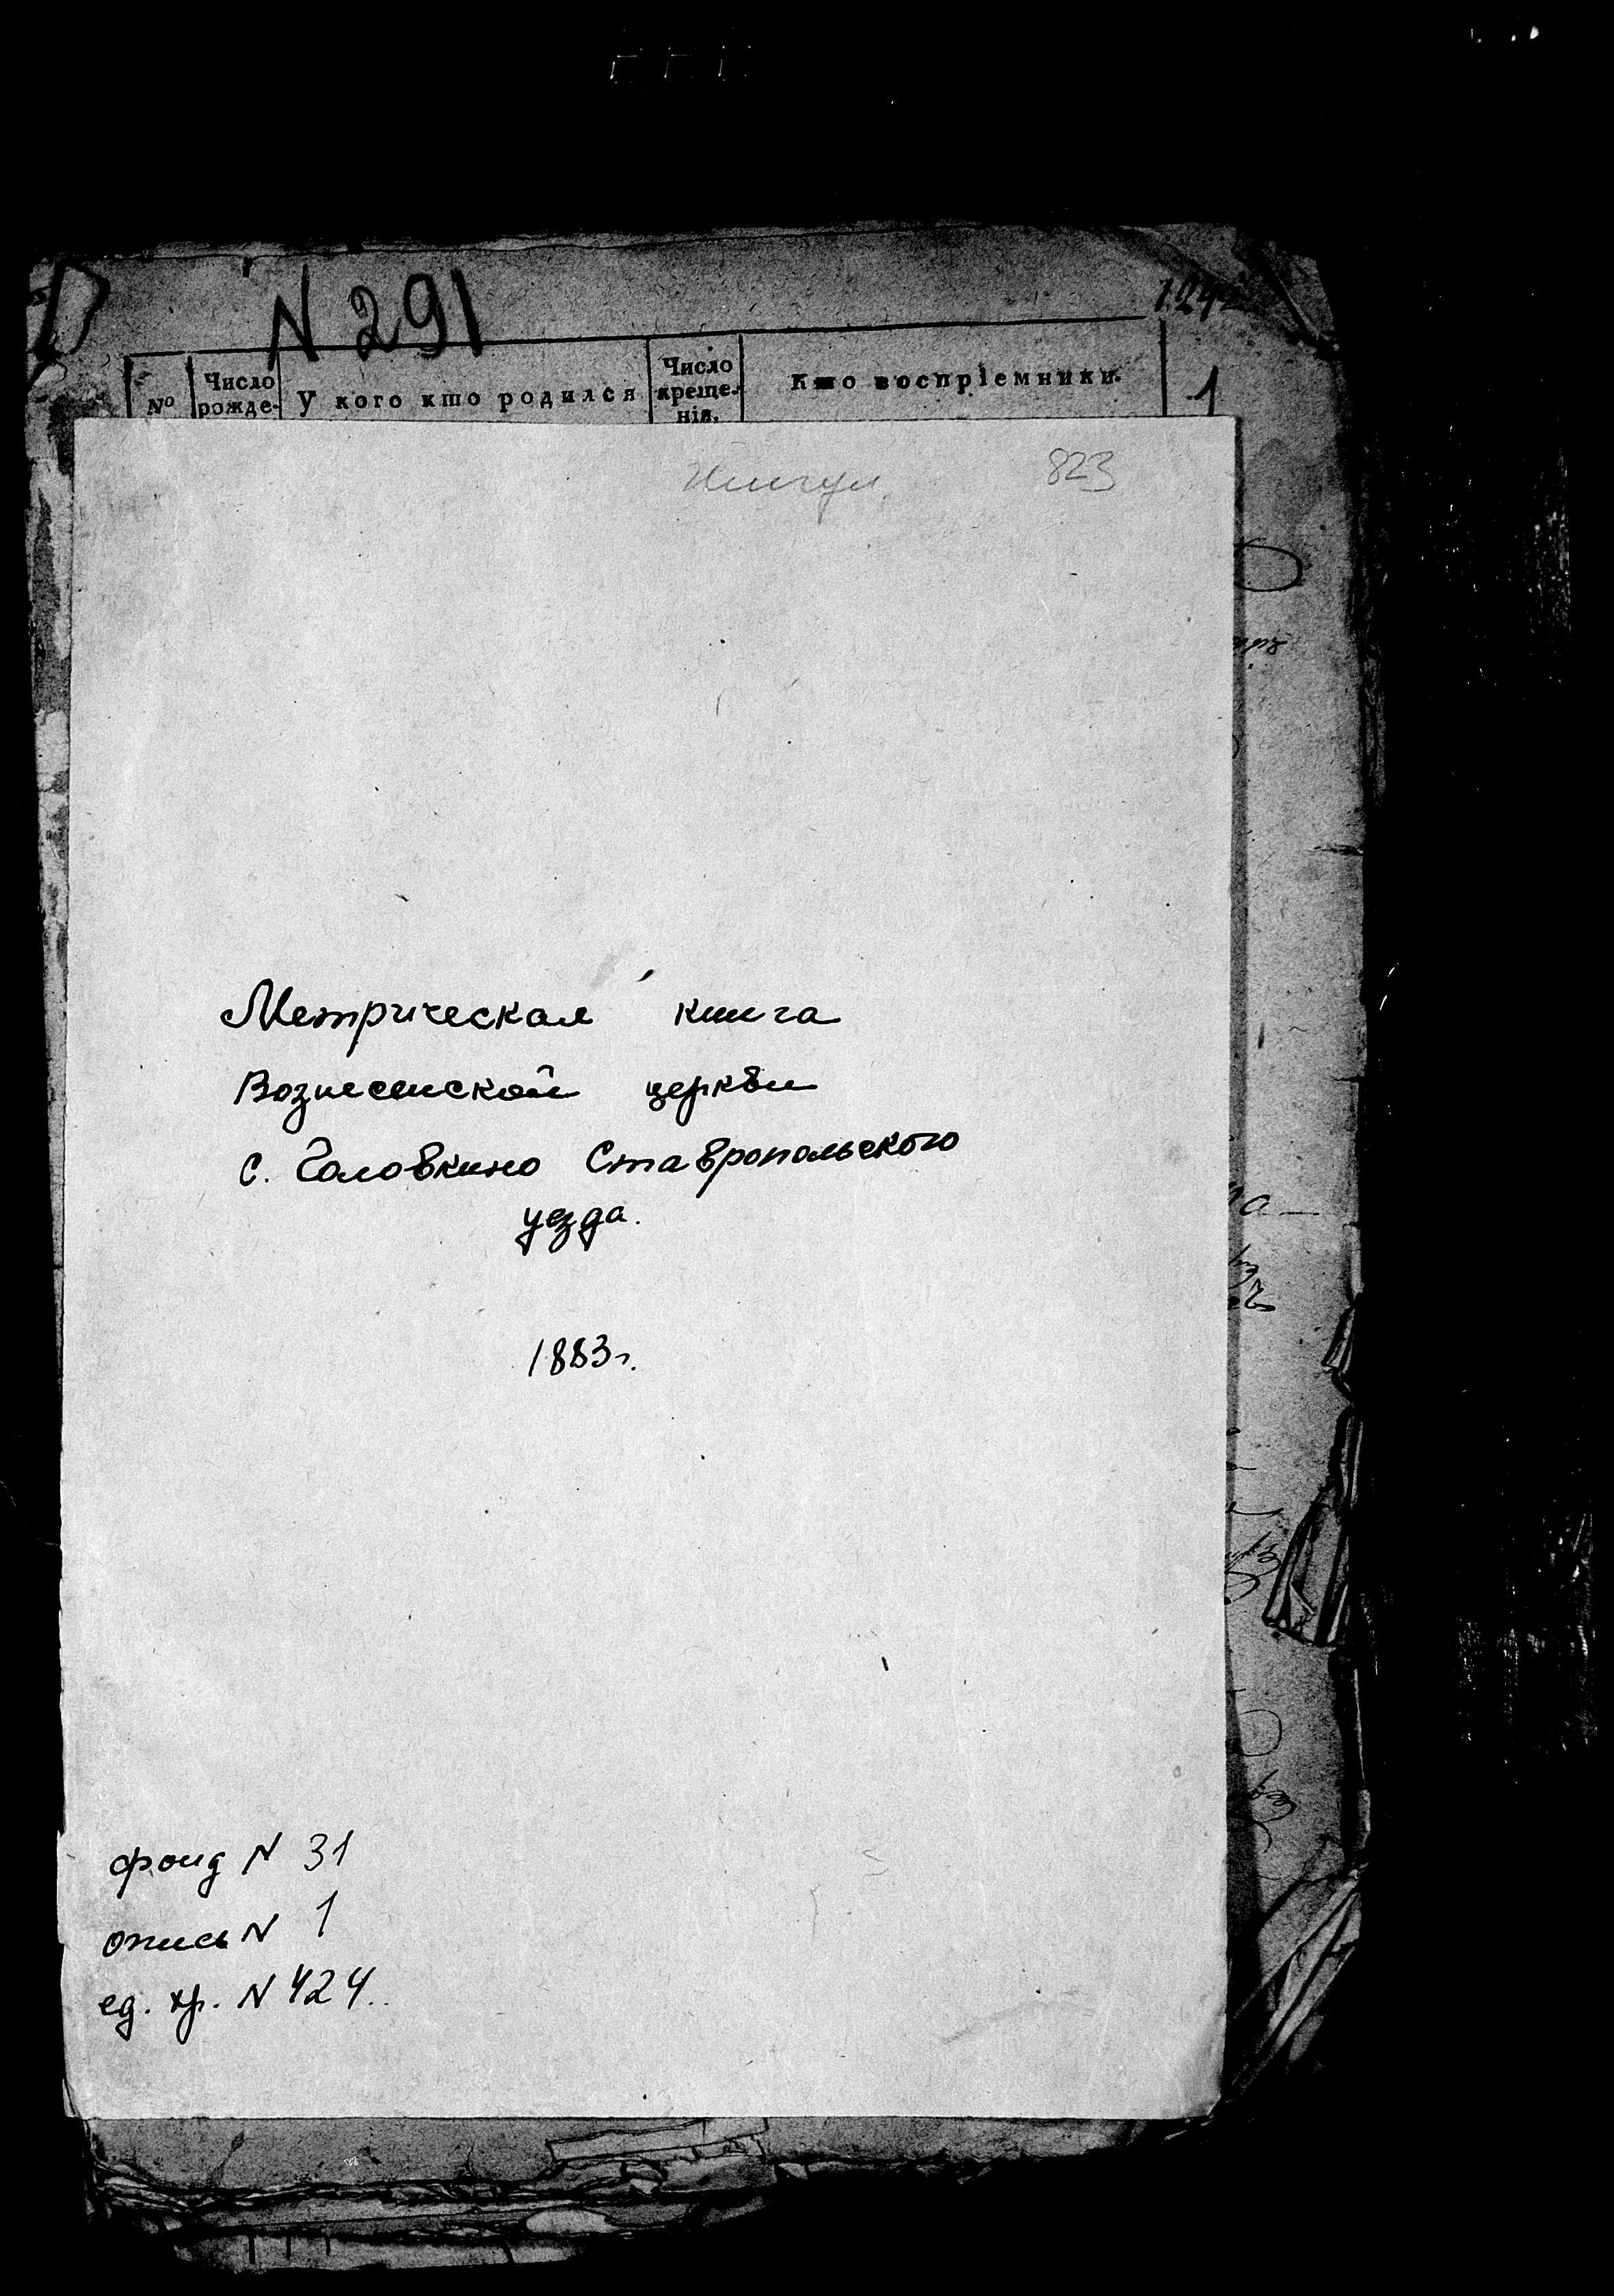 N 291
№
Число рожде-
У кого кто родился
Число креще- нія.
Кто воспріемники.
1
823
Метрическая книга
Вознесенской церкви
с. Головкино Ставропольского
уезда.
1883г.
фонд N 31
опись N 1
ед. хр. N 424.